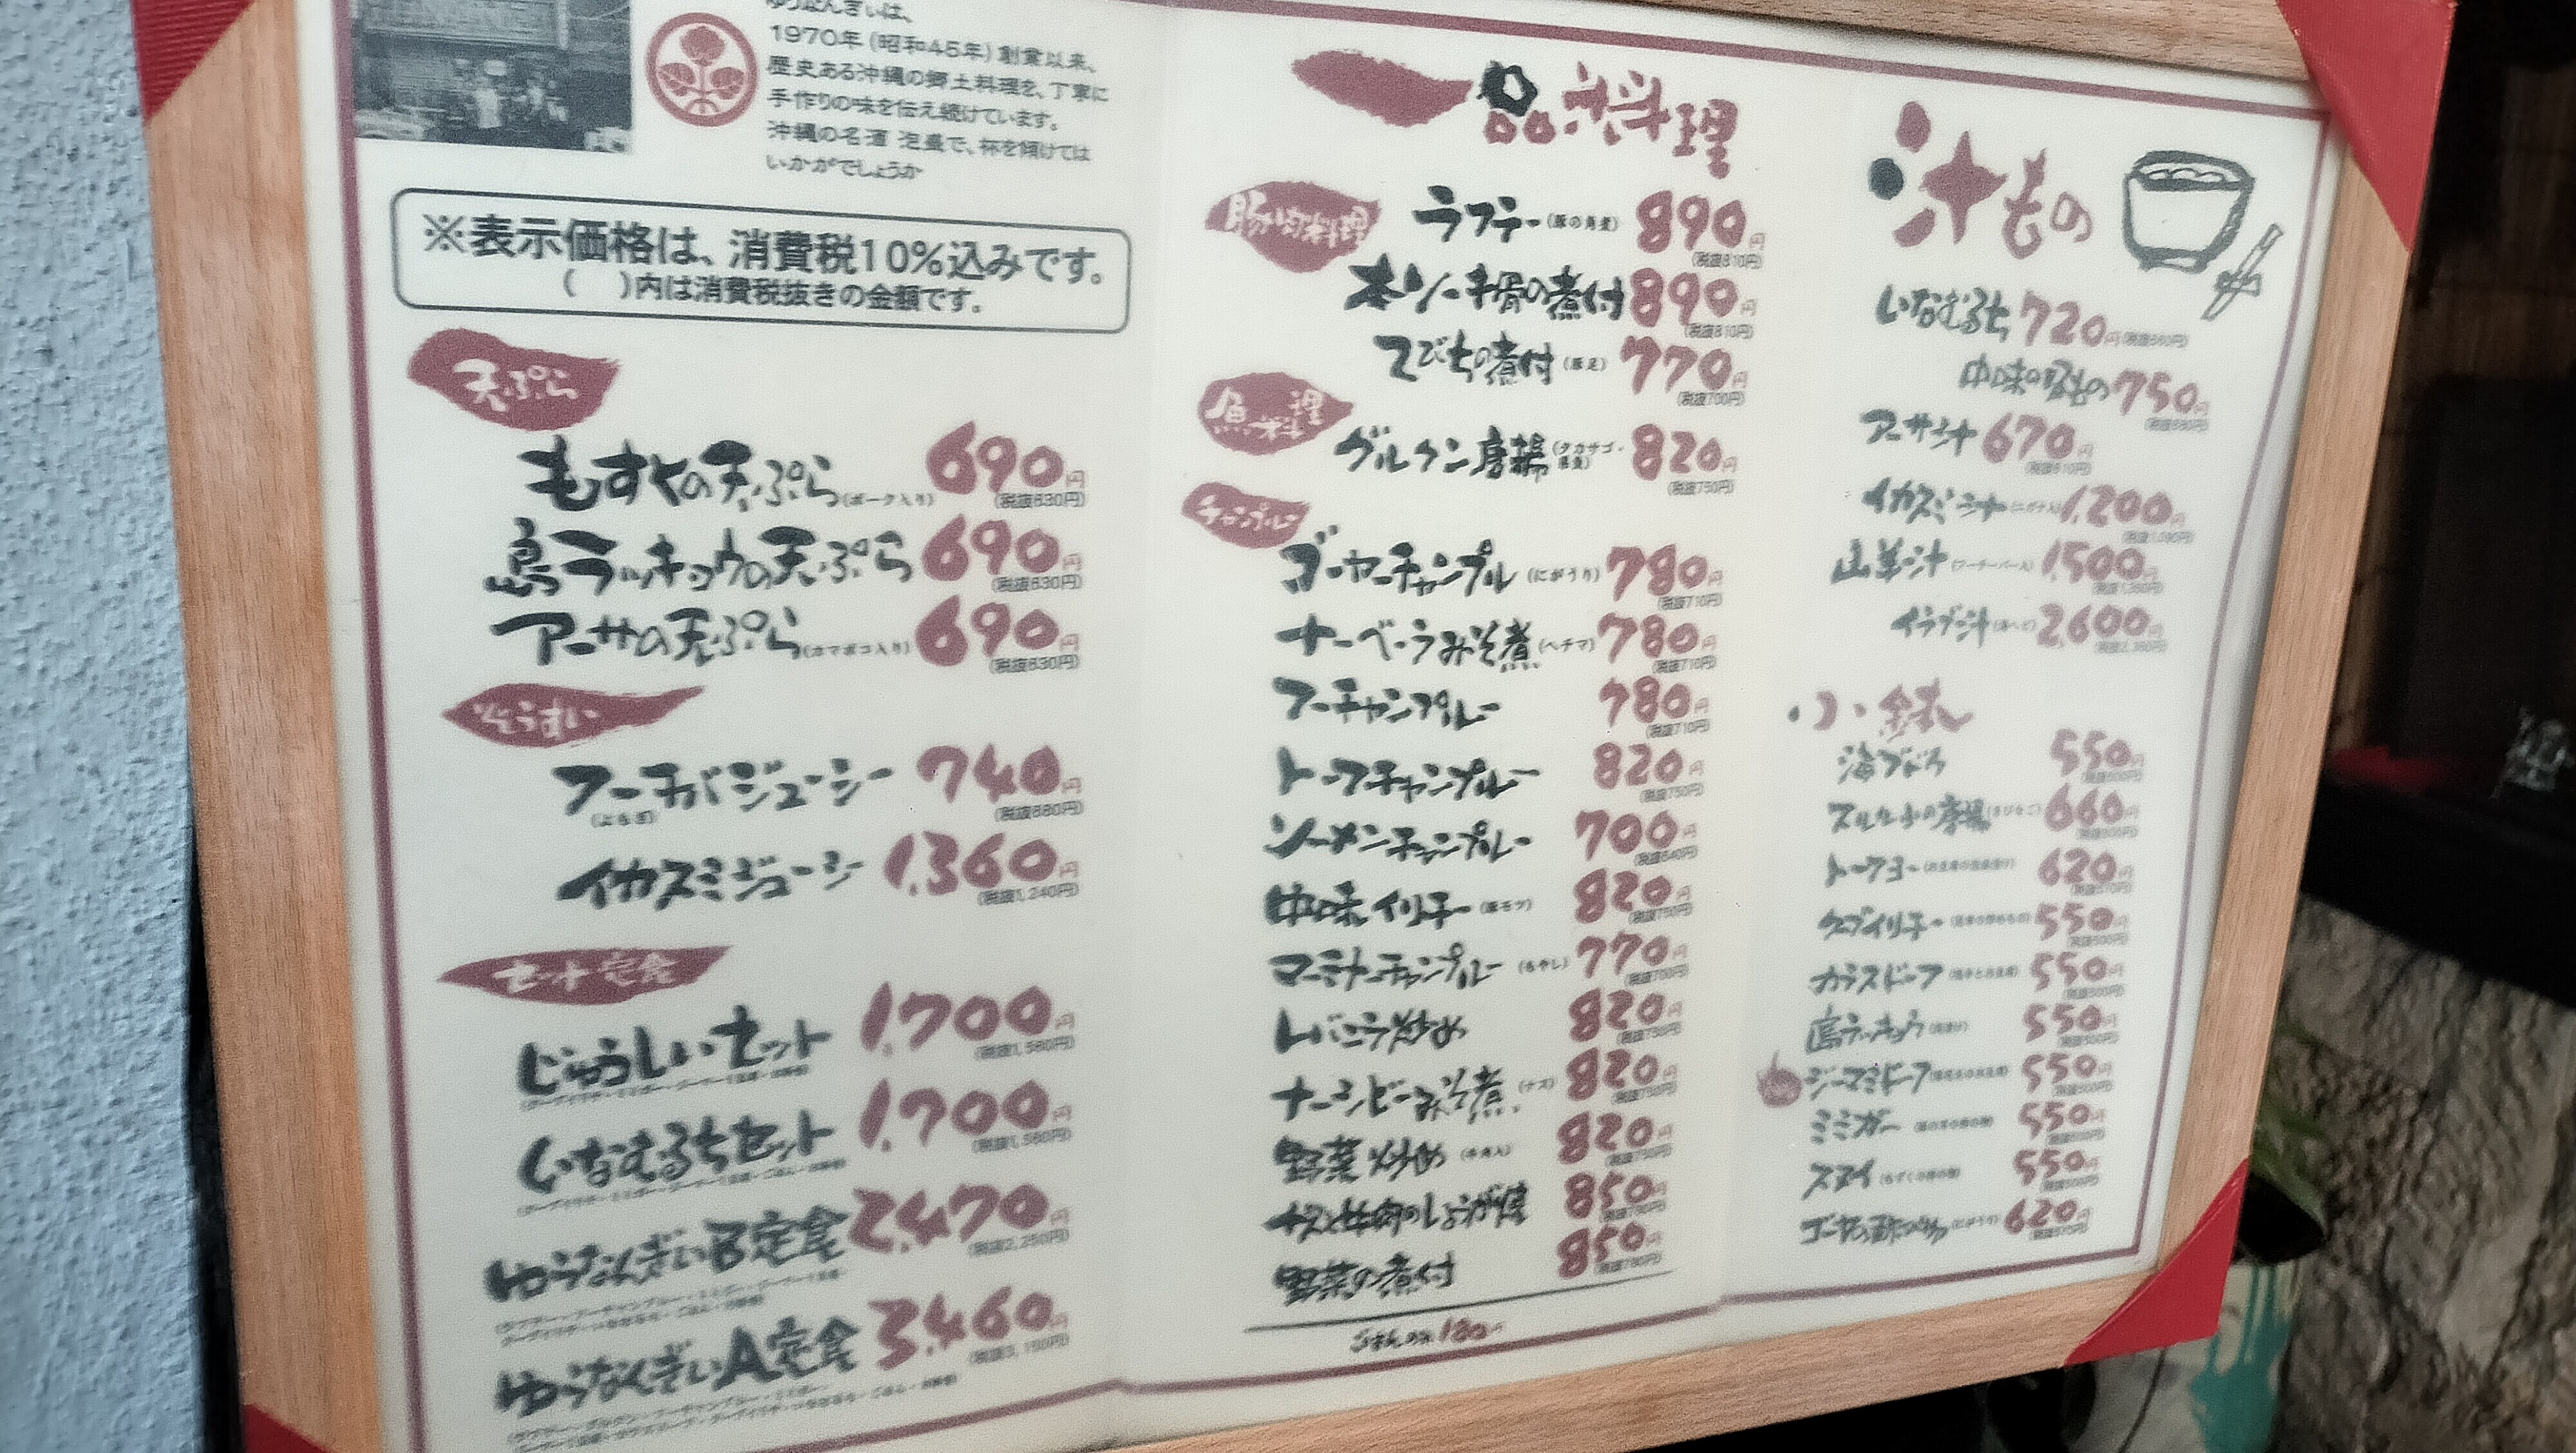 ゆうなんぎぃは、
1970年(昭和45年)創業以来、
歴史ある沖縄の郷土料理を、丁寧に
手作りの味を伝え続けています。
沖縄の名酒 泡盛で、杯を傾けては
いかがでしょうか
※表示価格は、消費税10%込みです。
( )内は消費税抜きの金額です。
天ぷら
もずくの天ぷら(ポーク入り) 690円
(税抜630円)
島ラッキョウの天ぷら 690円
(税抜630円)
アーサの天ぷら(カマボコ入り) 690円
(税抜630円)
ぞうすい
フーチバジューシー 740円
(よもぎ) (税抜680円)
イカスミジューシー 1,360円
(税抜1,240円)
セット・定食
じゅうしぃセット 1,700円
いなむるちセット 1,700円
ゆうなんぎぃB定食 2,470円
(税抜2,250円)
ゆうなんぎぃA定食 3,460円
一品料理
豚肉料理
ラフテー(豚の角煮) 890円
(税抜810円)
本ソーキ骨の煮付 890円
(税抜810円)
てびちの煮付(豚足) 770円
(税抜700円)
魚料理
グルクン唐揚(タカサゴ・県魚) 820円
(税抜750円)
チャンプルー
ゴーヤーチャンプル(にがうり) 780円
(税抜710円)
ナーベーラみそ煮(ヘチマ) 780円
(税抜710円)
フーチャンプルー 780円
(税抜710円)
トーフチャンプルー 820円
(税抜750円)
ソーメンチャンプルー 700円
(税抜640円)
中味イリチー(豚モツ) 820円
(税抜750円)
マーミナーチャンプルー(もやし) 770円
(税抜700円)
レバニラ炒め 820円
(税抜750円)
ナーシビーみそ煮(ナス) 820円
(税抜750円)
野菜炒め 820円
(税抜750円)
ナスと牛肉のしょうが焼 850円
野菜の煮付 850円
ごはん 180円
汁もの
いなむるち 720円
中味の吸もの 750円
アーサ汁 670円
(税抜610円)
イカスミ汁 1,200円
山羊汁(フーチーバー入) 1,500円
イラブ汁 2,600円
小鉢
海ぶどう 550円
(税抜500円)
スルル小の唐揚 660円
トーフヨー 620円
クーブイリチー 550円
(税抜500円)
カラスドーフ 550円
(税抜500円)
島ラッキョウ 550円
(税抜500円)
ジーマミドーフ 550円
ミミガー 550円
スヌイ 550円
ゴーヤーの酢のもの(にがうり) 620円